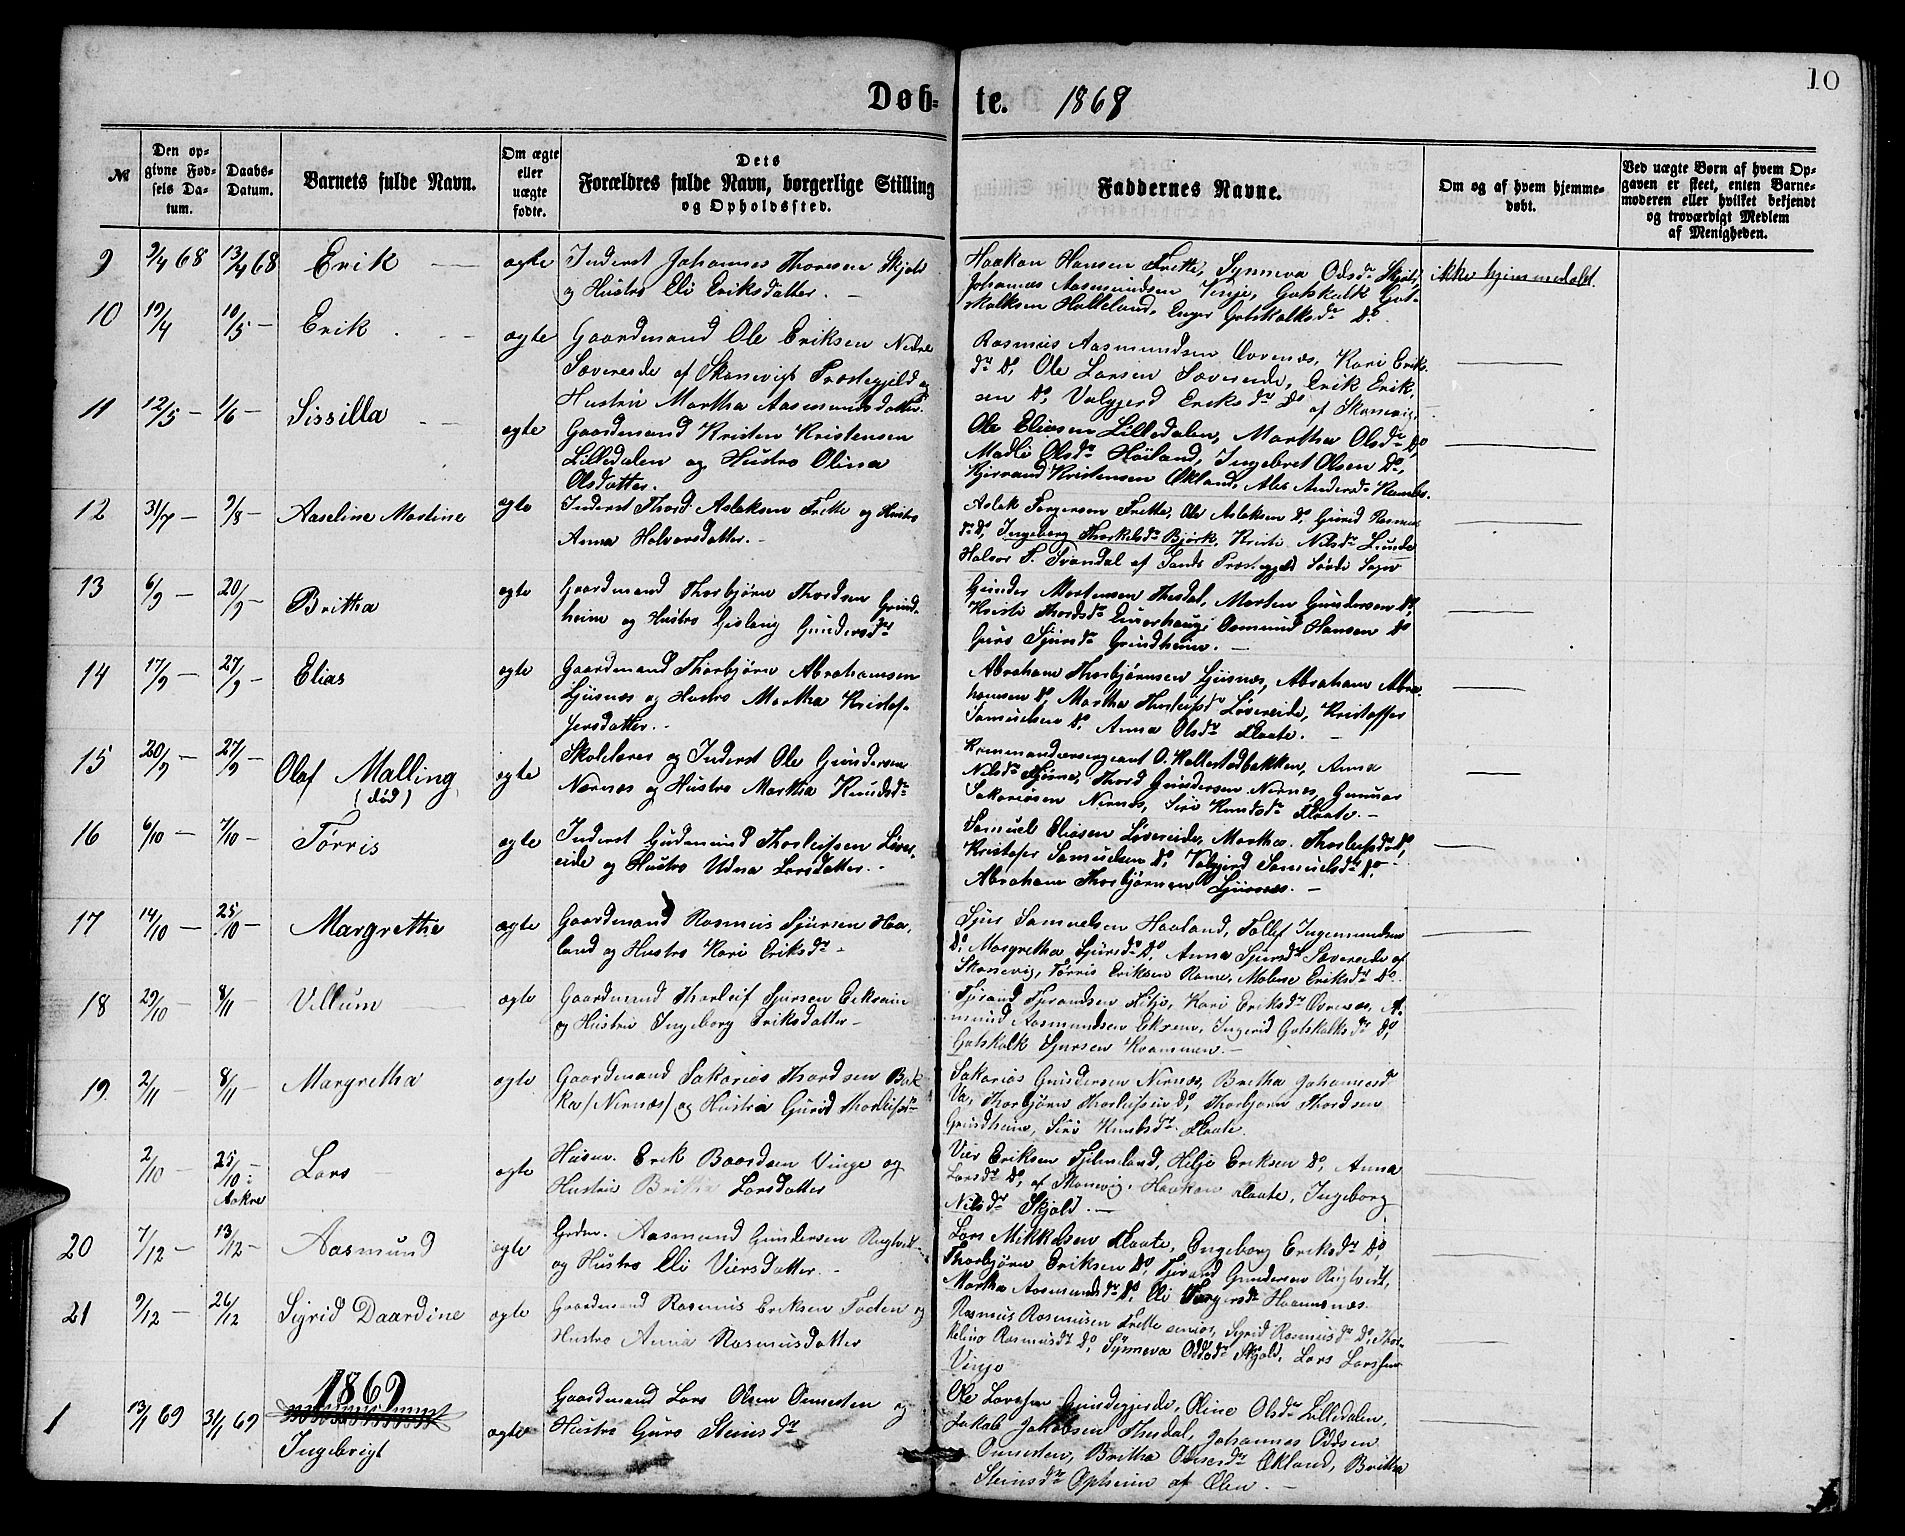 10
Døb- te. 1868
№
Den opgivne Fødsels Datum.
Daabs-Datum.
Barnets fulde Navn.
Om ægte eller uægte fødte.
Dets Forældres fulde Navn, borgerlige Stilling og Opholdssted.
Faddernes Navne.
Om og af hvem hjemmedøbt.
Ved uægte Børn af hvem Opgaven er skeet, enten Barnemoderen eller hvilket bekjendt og troværdigt Medlem af Menigheden.
9 3/4 68 13/4 68 Erik ægte Inderst Johannes Thoresen Skjold
og Hustro Eli Eriksdatter.
Haakon Hansen Frette, Synneva Odsdr Skjold,
Johannes Aasmundsen Vinje, Gotskalk Got-
skalksen Halleland, Inger Gotskalksdr Do
ikke hjemmedøbt.
10 19/4 10/5 Erik ægte Gaardmand Ole Eriksen Nedre
Sævereide af Skonevigs Præstegjeld og
Hustru Martha Aasmundsdatter.
Rasmus Aasmundsen Øvrenæs, Kari Erik-
dr Do, Ole Larsen Sævereide, Erik Erik-
sen Do, Valgjerd Eriksdr Do af Skonevig.
11 12/5 1/6 Sissilla ægte Gaardmand Kristen Kristensen
Lilledalen og Hustro Olina
Olsdatter.
Ole Eliasen Lilledalen, Martha Olsdr Do
Madli Olsdr Høiland, Ingebret Olsen Do,
Kristensen Økland,
12 31/7 9/8 Aaseline Martine ægte Inderst Thord Aslaksen Frette og Hustro
Anna Halvorsdatter.
Aslak Torgersen Frette, Ole Aslaksen Do, Gurid Rasmus
dr Do, Ingeborg Thorkelsdr Bjørk, Kristi Nilsdr Lunde
Halvor T. Tvandal af Sands Præstegjeld Sovde Sogn
13 6/9 20/9 Britha ægte Gaardmand Thorbjørn Thordsen Grind-
heim og Hustro Gislaug Gundersdr
Gunder Mortensen Thesdal, Morten Gundersen Do,
Kristi Thordsdr Osmund Hansen Do
Guro Sjursdr Grindheim.
14 17/9 27/9 Elias ægte Gaardmand Thorbjørn Abrahamsen
Ljusnæs og Hustro Martha Kristof-
fersdatter.
Abraham Thorbjørnsen Ljusnæs, Abraham Abra-
hamsen Do, Martha Thorleifsdr Løvereide, Kristoffer
Samuelsen Do, Anna Olsdr Flaate.
15 20/9 27/9 Olaf Malling
(død)
ægte Skolelærer og Inderst Ole Gundersen
Nærnæs og Hustro Martha Knudsdr
Kommandersergeant O. Kallestadbakken, Anna
Nilsdr Thord Gundersen Nernæs, Gunnar
Sakariasen Nernæs, Siri Knudsdr Flaate.
16 6/10 7/10 Tørris ægte Inderst Gudmund Thorleifsen Løver-
eide og Hustro Udna Larsdatter.
Samuel Eliasen Løvereide, Martha Thorleifsdr Do,
Kristofer Samuelsen Do, Valgjerd Samuelsdr Do
Abraham Thorbjørnsen Ljusnæs.
17 14/10 25/10 Margretha ægte Gaardmand Rasmus Sjursen Haa-
land og Hustro Kari Eriksdr
Sjur Samuelsen Haaland, Tollef Ingemundsen
Do, Margretha Sjursdr Do, Anna Sjursdr Sævereide af
Skonevig, Tørris Eriksen Rame, Malene Eriksdr Do
18 29/10 8/11 Villum ægte Gaardmand Thorleif Sjursen Eikrein
og Hustru Ingeborg Eriksdatter
Tjerand Tjerandsen Kari Eriksdr Øvrenæs, A-
mund Aasmundsen Ingerid Gotskalksdr Do,
Gotskalk Sjursen Kvammen.
19. 2/11 8/11 Margretha ægte Gaardmand Sakarias Thordsen Bak-
ka (Nernæs) og Hustru Gurid Thorleifsdr
Sakarias Gundersen Nernæs, Bretha Johannesdr
Va, Thorbjørn Thorleifsen Do, Thorbjørn Thordsen
Grindheim, Siri Knudsdr Flaate.
2/10 25/10 Aakre Lars ægte Husm. Erik Baardsen Vinge og
Hustru Britha Larsdatter
Vier Eriksen Fjelmeland, Helje Eriksen Do, Anna
Larsdr Do, af Skonevig, Haakon Flaate, Ingeborg
Nilsdr Skjold.
20 7/12 13/12 Aasmund ægte Grdm. Aasmund Gundersen Rygtveit
og Hustro Eli Viersdatter.
Lars Mikkelsen Flaate, Ingeborg Eriksdr Do,
Thorbjørn Eriksen Do, Tjerand Gundersen Rygtveit,
Martha Aasmundsdr Do, Eli Torgersdr Hammenæs
21 9/12 26/12 Sigrid Daardine ægte Gaardmand Rasmus Eriksen Foden og
Hustro Anna Rasmusdatter
Rasmus Rasmussen Frette senior, Sigrid Rasmusdr Do, Thor-
keline Rasmusdr Do, Synneva Oddsdr Skjold, Lars Larssen
Vinje
1869
1 13/1 69 31/1 69 Ingebrigt ægte Gaardmand Lars Olsen Ommesten og
Hustro Guro Steinsdr
Ole Larssen Grindegjerde, Oline Olsdr Lilledalen,
Jakob Jakobsen Thesdal, Johannes Oddsen
Ommesten, Britha Økland, Britha
Steinsdr Opheim af Ølen.